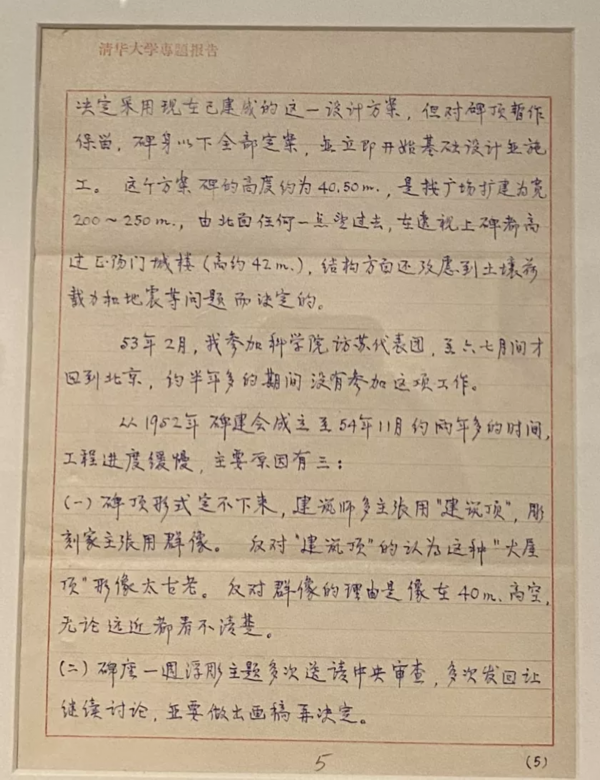 清华大学专题报告
决定采用现在已建成的这一设计方案，但对碑顶暂作
保留，碑身以下全部定案，並立即开始基础设计並施
工。 这个方案碑的高度约为40.50m.，是按广场扩建为宽
200～250m.，由北面任何一点望过去，在透视上碑都高
过正阳门城楼（高约42m.），结构方面还攷虑到土壤荷
载力和地震等问题而决定的。
53年2月，我参加科学院访苏代表团，至六七月间才
回到北京，约半年多的期间没有参加这项工作。
从1952年碑建会成立至54年11月约两年多的时间，
工程进度缓慢，主要原因有三：
(一) 碑顶形式定不下来，建筑师多主张用“建筑顶”，彫
刻家主张用群像。 反对“建筑顶”的认为这种“大屋
顶”形像太古老。反对群像的理由是像在40m.高空，
无论远近都看不清楚。
(二) 碑座一週浮彫主题多次送请中央审查，多次发回让
继续讨论，並要做出画稿再决定。
5
(5)